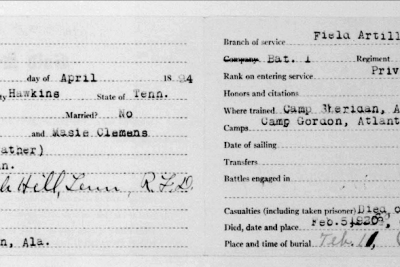 day of April 1894
Hawkins State of Tenn.
Married? No
and Masie Clemens
ather)
n.
Hill, Tenn, R.F.D.
n, Ala.
Field Artill
Branch of service
Company Bat. 1 Regiment
Priv
Rank on entering service
Honors and citations
Where trained Camp Sheridan, A
Camps Camp Gordon, Atlant
Date of sailing
Transfers
Battles engaged in
Casualties (including taken prisoner) Died o
Feb. 5,
Died, date and place
Place and time of burial Feb. 11,